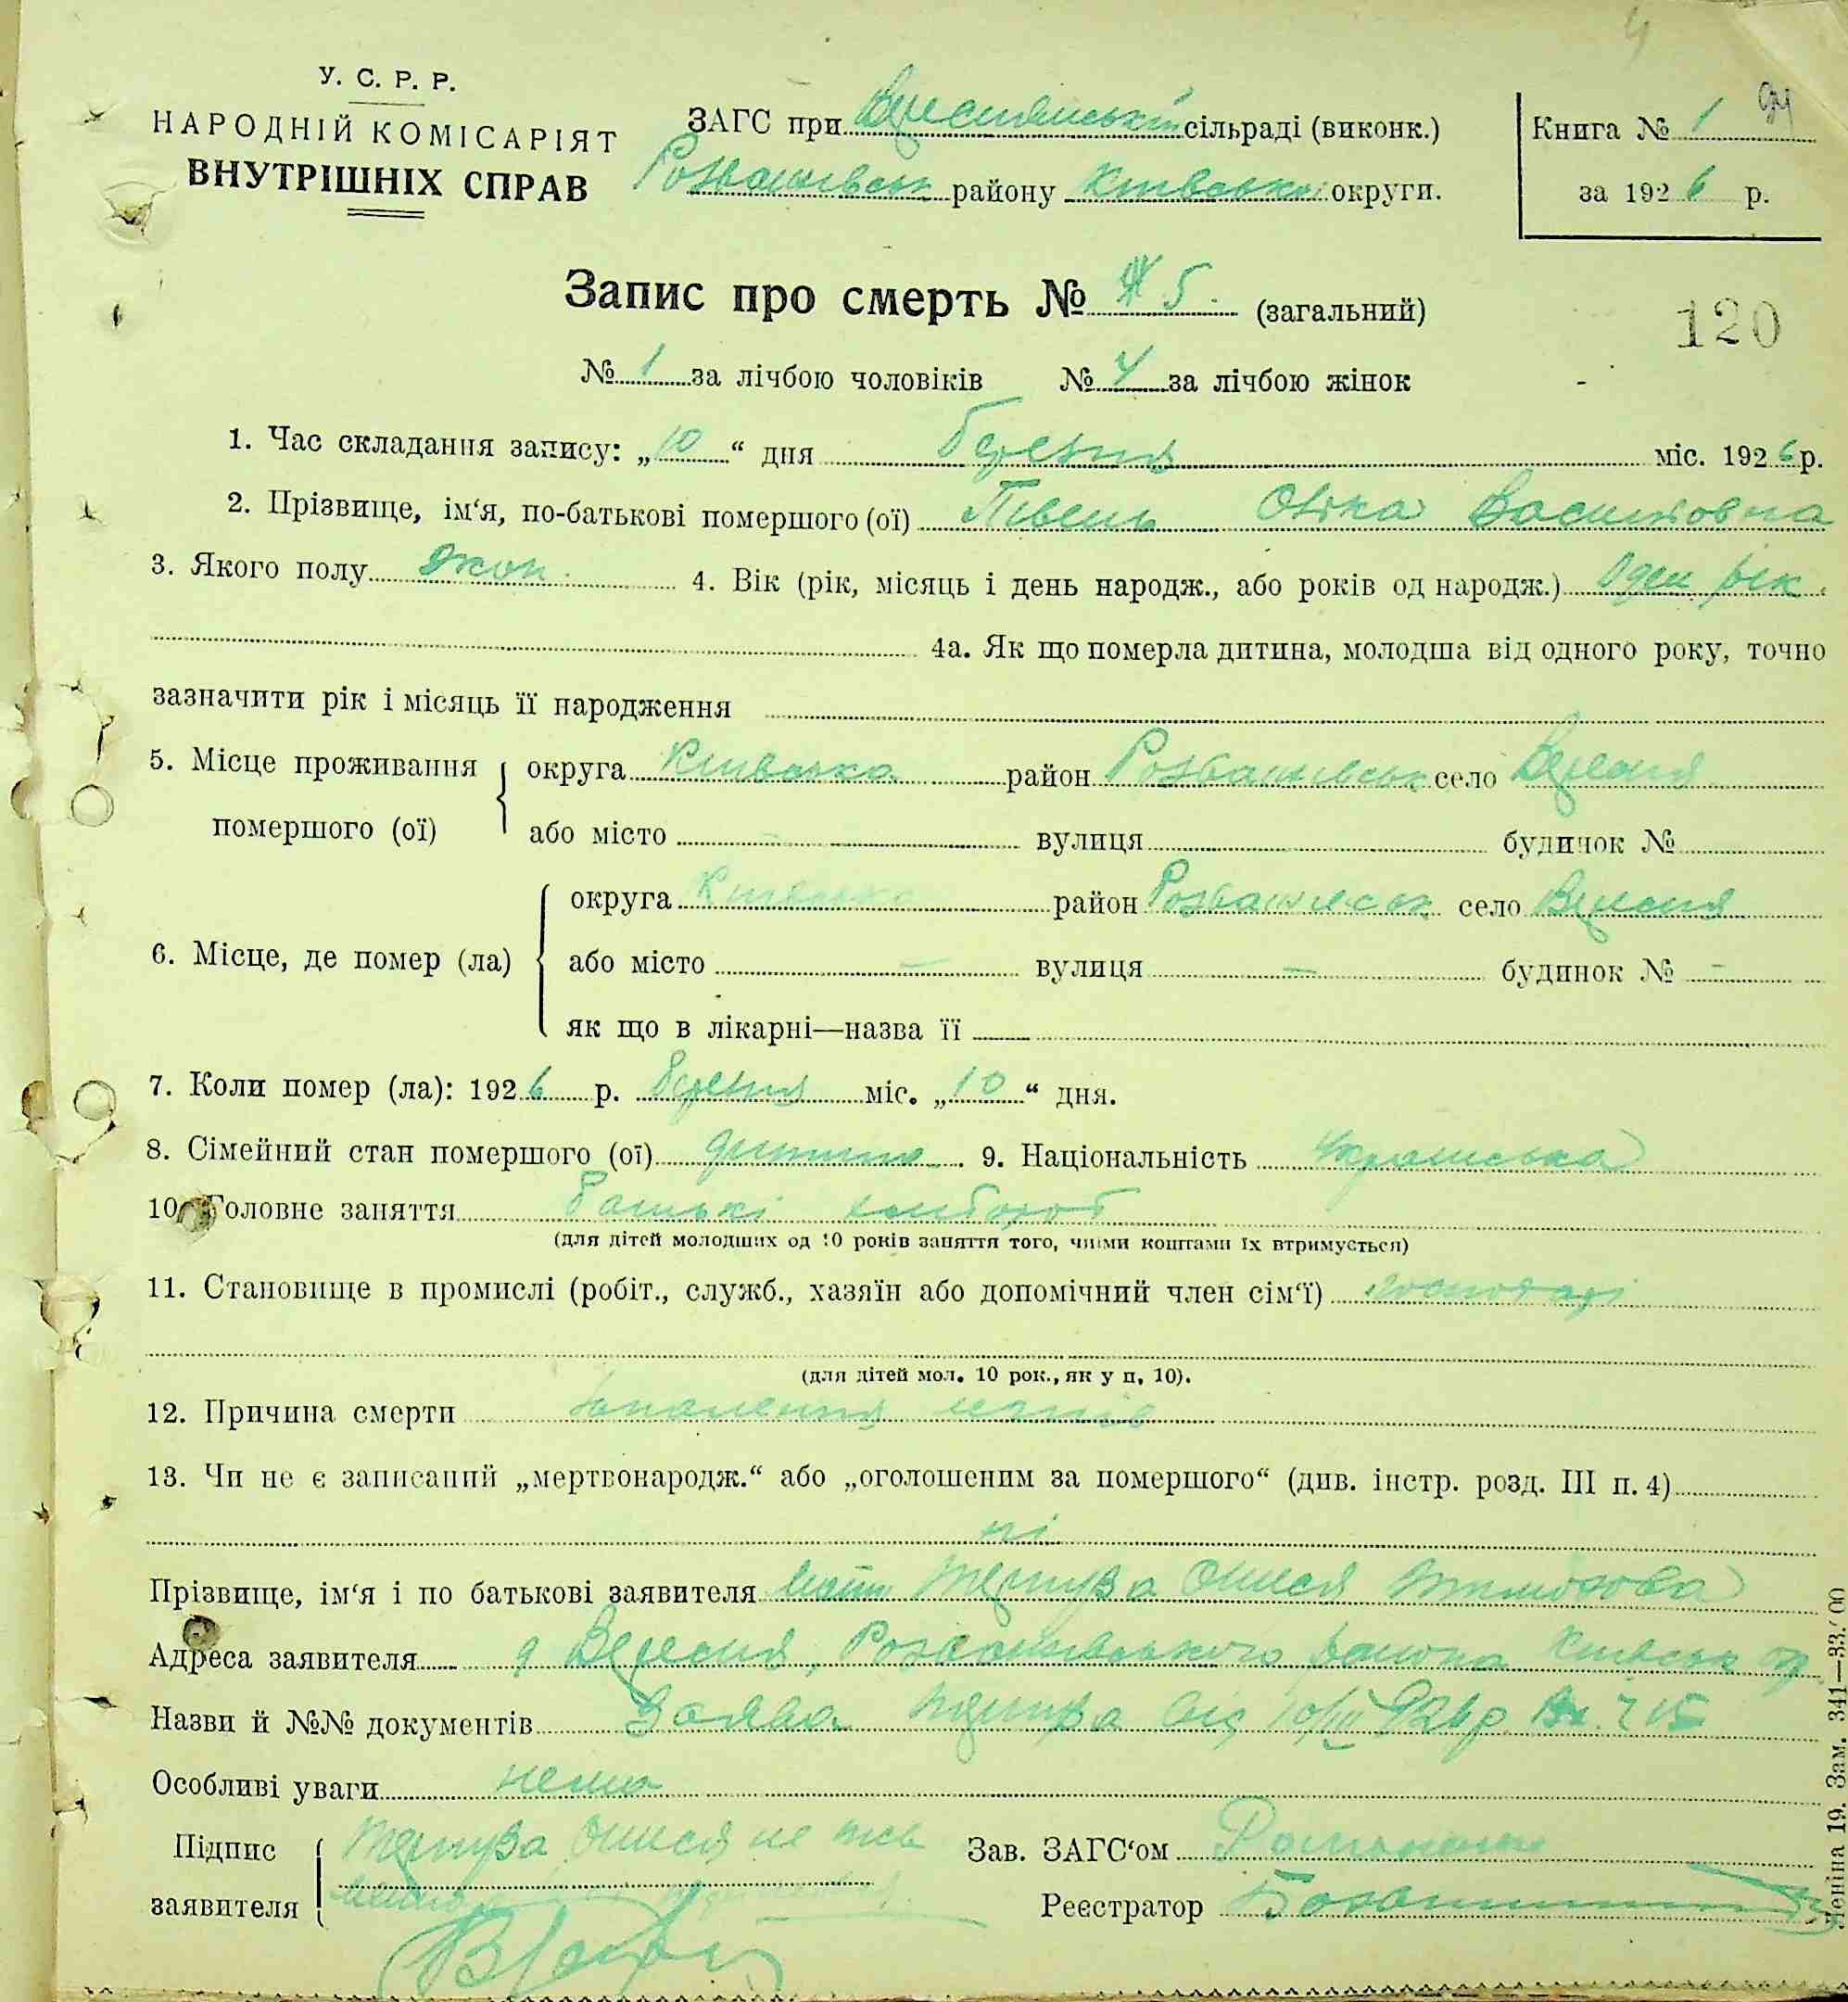 У. С. Р. Р.
НАРОДНІЙ КОМІСАРІЯТ
ВНУТРІШНІХ СПРАВ
ЗАГС при Вереснянській сільраді (виконк.)
Розважівськ району Київської округи.
Книга № 1
за 1926 р.
Запис про смерть № 5 (загальний)
120
№ 1 за лічбою чоловіків № 4 за лічбою жінок
1. Час складання запису: „10“ дня березня міс. 1926 р.
2. Прізвище, ім‘я, по-батькові помершого (ої) Півень Васильовна
3. Якого полу жон. 4. Вік (рік, місяць і день народж., або років од народж.) Оден рік.
4а. Як що померла дитина, молодша від одного року, точно
зазначити рік і місяць її народження
5. Місце проживання помершого (ої) округа Київська район Розважівськ село Вересня
або місто вулиця будинок №
6. Місце, де помер (ла) округа Київська район Розважівськ село Вересня
або місто — вулиця — будинок № —
як що в лікарні—назва її
7. Коли помер (ла): 1926 р. березня міс. „10“ дня.
8. Сімейний стан помершого (ої) дитина. 9. Національність Українська
10. Головне заняття батькі хлібороб
(для дітей молодших од 10 років заняття того, чиїми коштами їх втримується)
11. Становище в промислі (робіт., служб., хазяїн або допомічний член сім‘ї) господарі
(для дітей мол. 10 рок., як у п. 10).
12. Причина смерти запалення легнів
13. Чи не є записаний „мертвонародж.“ або „оголошеним за помершого“ (див. інстр. розд. III п. 4)
ні
Прізвище, ім‘я і по батькові заявителя мати
Адреса заявителя Вересня, Розважівського району Київськ
Назви й №№ документів Заява від 10/III 926 р.
Особливі уваги нема
Підпис заявителя
Зав. ЗАГС‘ом Романенко
Реєстратор
Леніна 19. Зам. 341—33.00